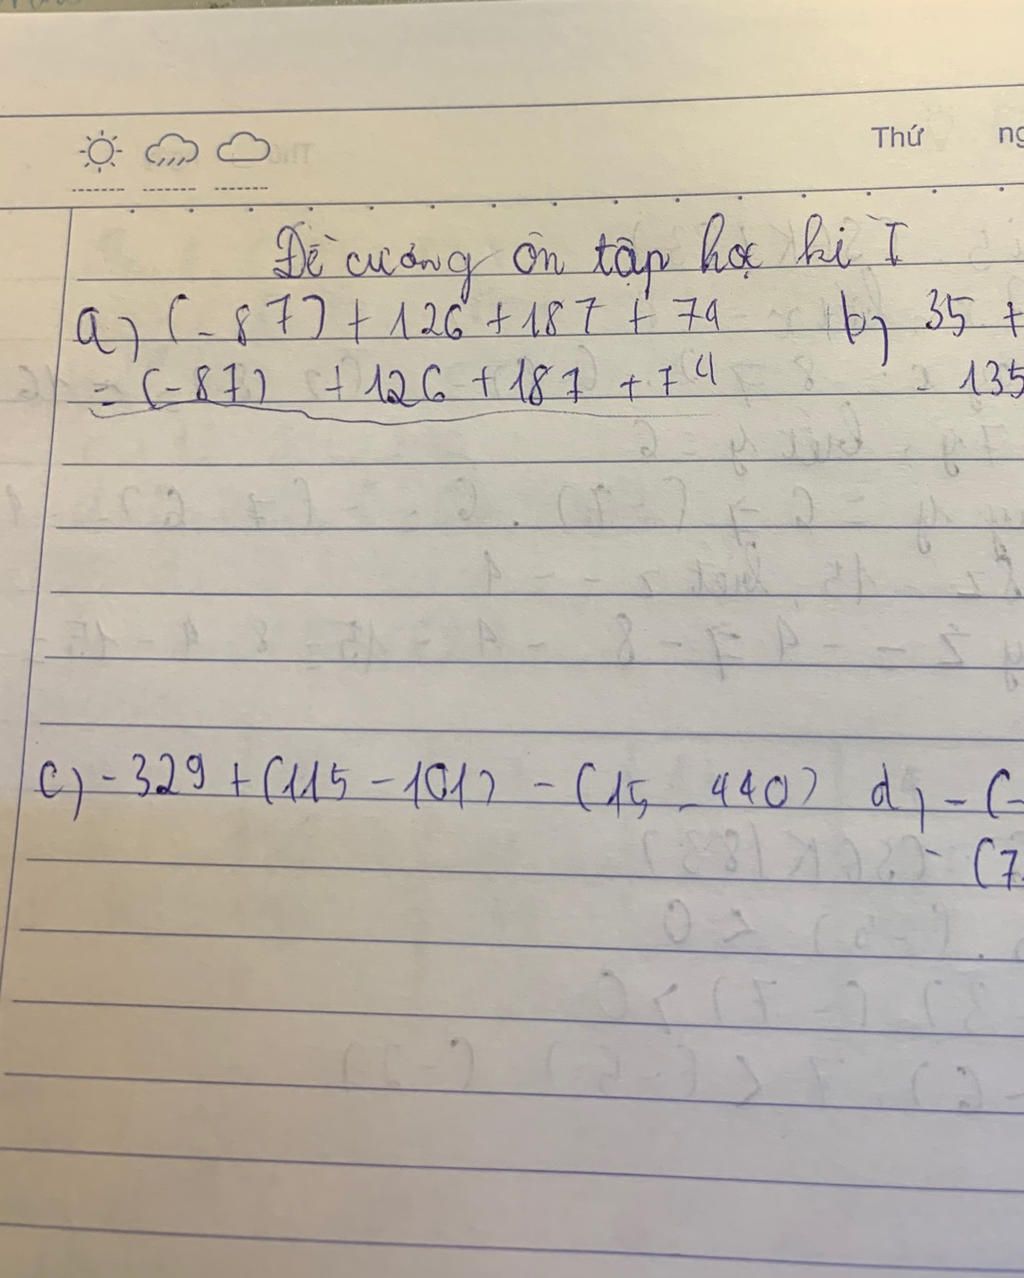 Thứ ng
Đề cương ôn tập học kì I
a) (-87) + 126 + 187 + 74 b) 35 +
= (-87) + 126 + 187 + 74 = 135
c) -329 + (115 - 101) - (15 - 440) d) - (-
- (7